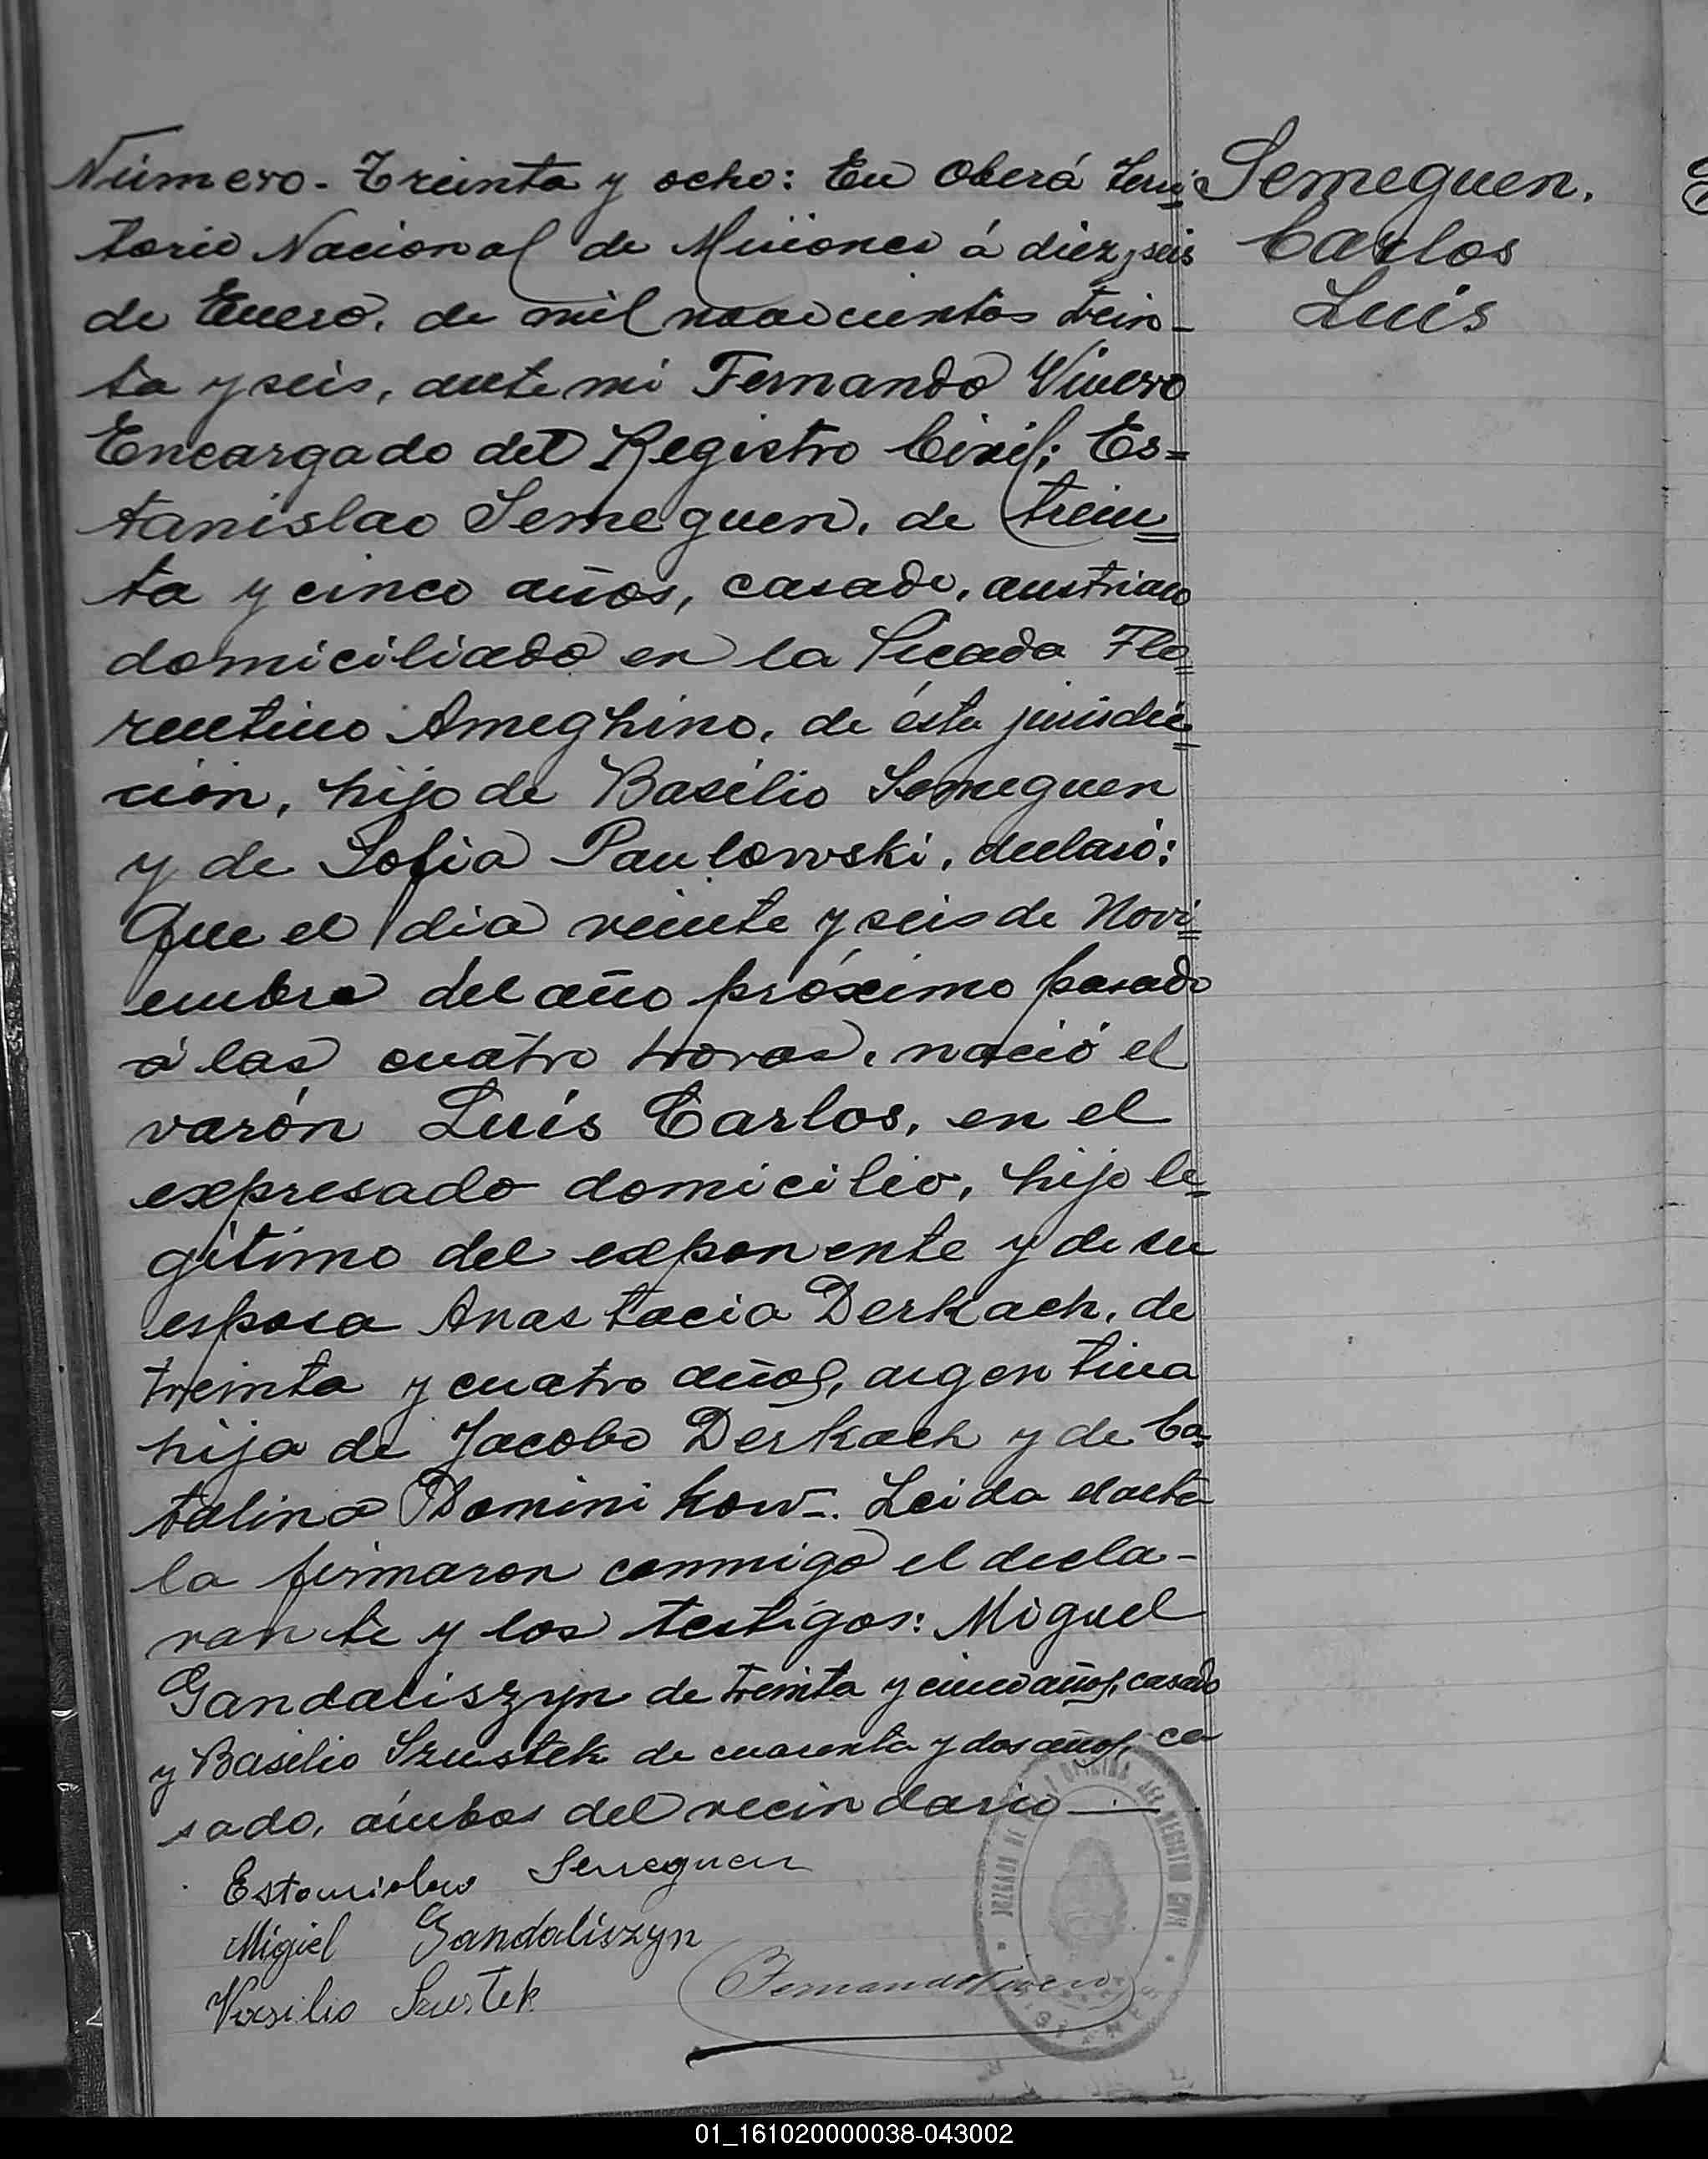 Número-Treinta y ocho: En Oberá Terri=
torio Nacional de Misiones á diez y seis
de Enero, de mil novecientos trein-
ta y seis, ante mi Fernando Vivero
Encargado del Registro Civil; Es=
tanislao Semeguen, de trein=
ta y cinco años, casado, austriaco
domiciliado en la Picada Flo=
rentino Ameghino, de ésta jurisdic=
ción, hijo de Basilio Semeguen
y de Sofia Paulowski, declaró:
Que el dia veinte y seis de Novi=
embre del año próximo pasado
á las cuatro horas, nació el
varón Luis Carlos, en el
expresado domicilio, hijo le=
gitimo del exponente y de su
esposa Anastacia Derkach, de
treinta y cuatro años, argentina
hija de Jacobo Derkach y de Ca=
talina Dominikow-. Leida el acta
la firmaron conmigo el decla-
rante y los testigos: Miguel
Gandaliszyn de treinta y cinco años, casado
y Basilio Szustek de cuarenta y dos años, ca
sado, ámbos del vecindario
Semeguen.
Carlos
Luis
Estanislao Semeguen
Migiel Gandaliszyn
Vasilio Szustek
Fernando Vivero
JUZGADO DE PAZ Y OFICINA DEL REGISTRO CIVIL
MISIONES
01_161020000038-043002